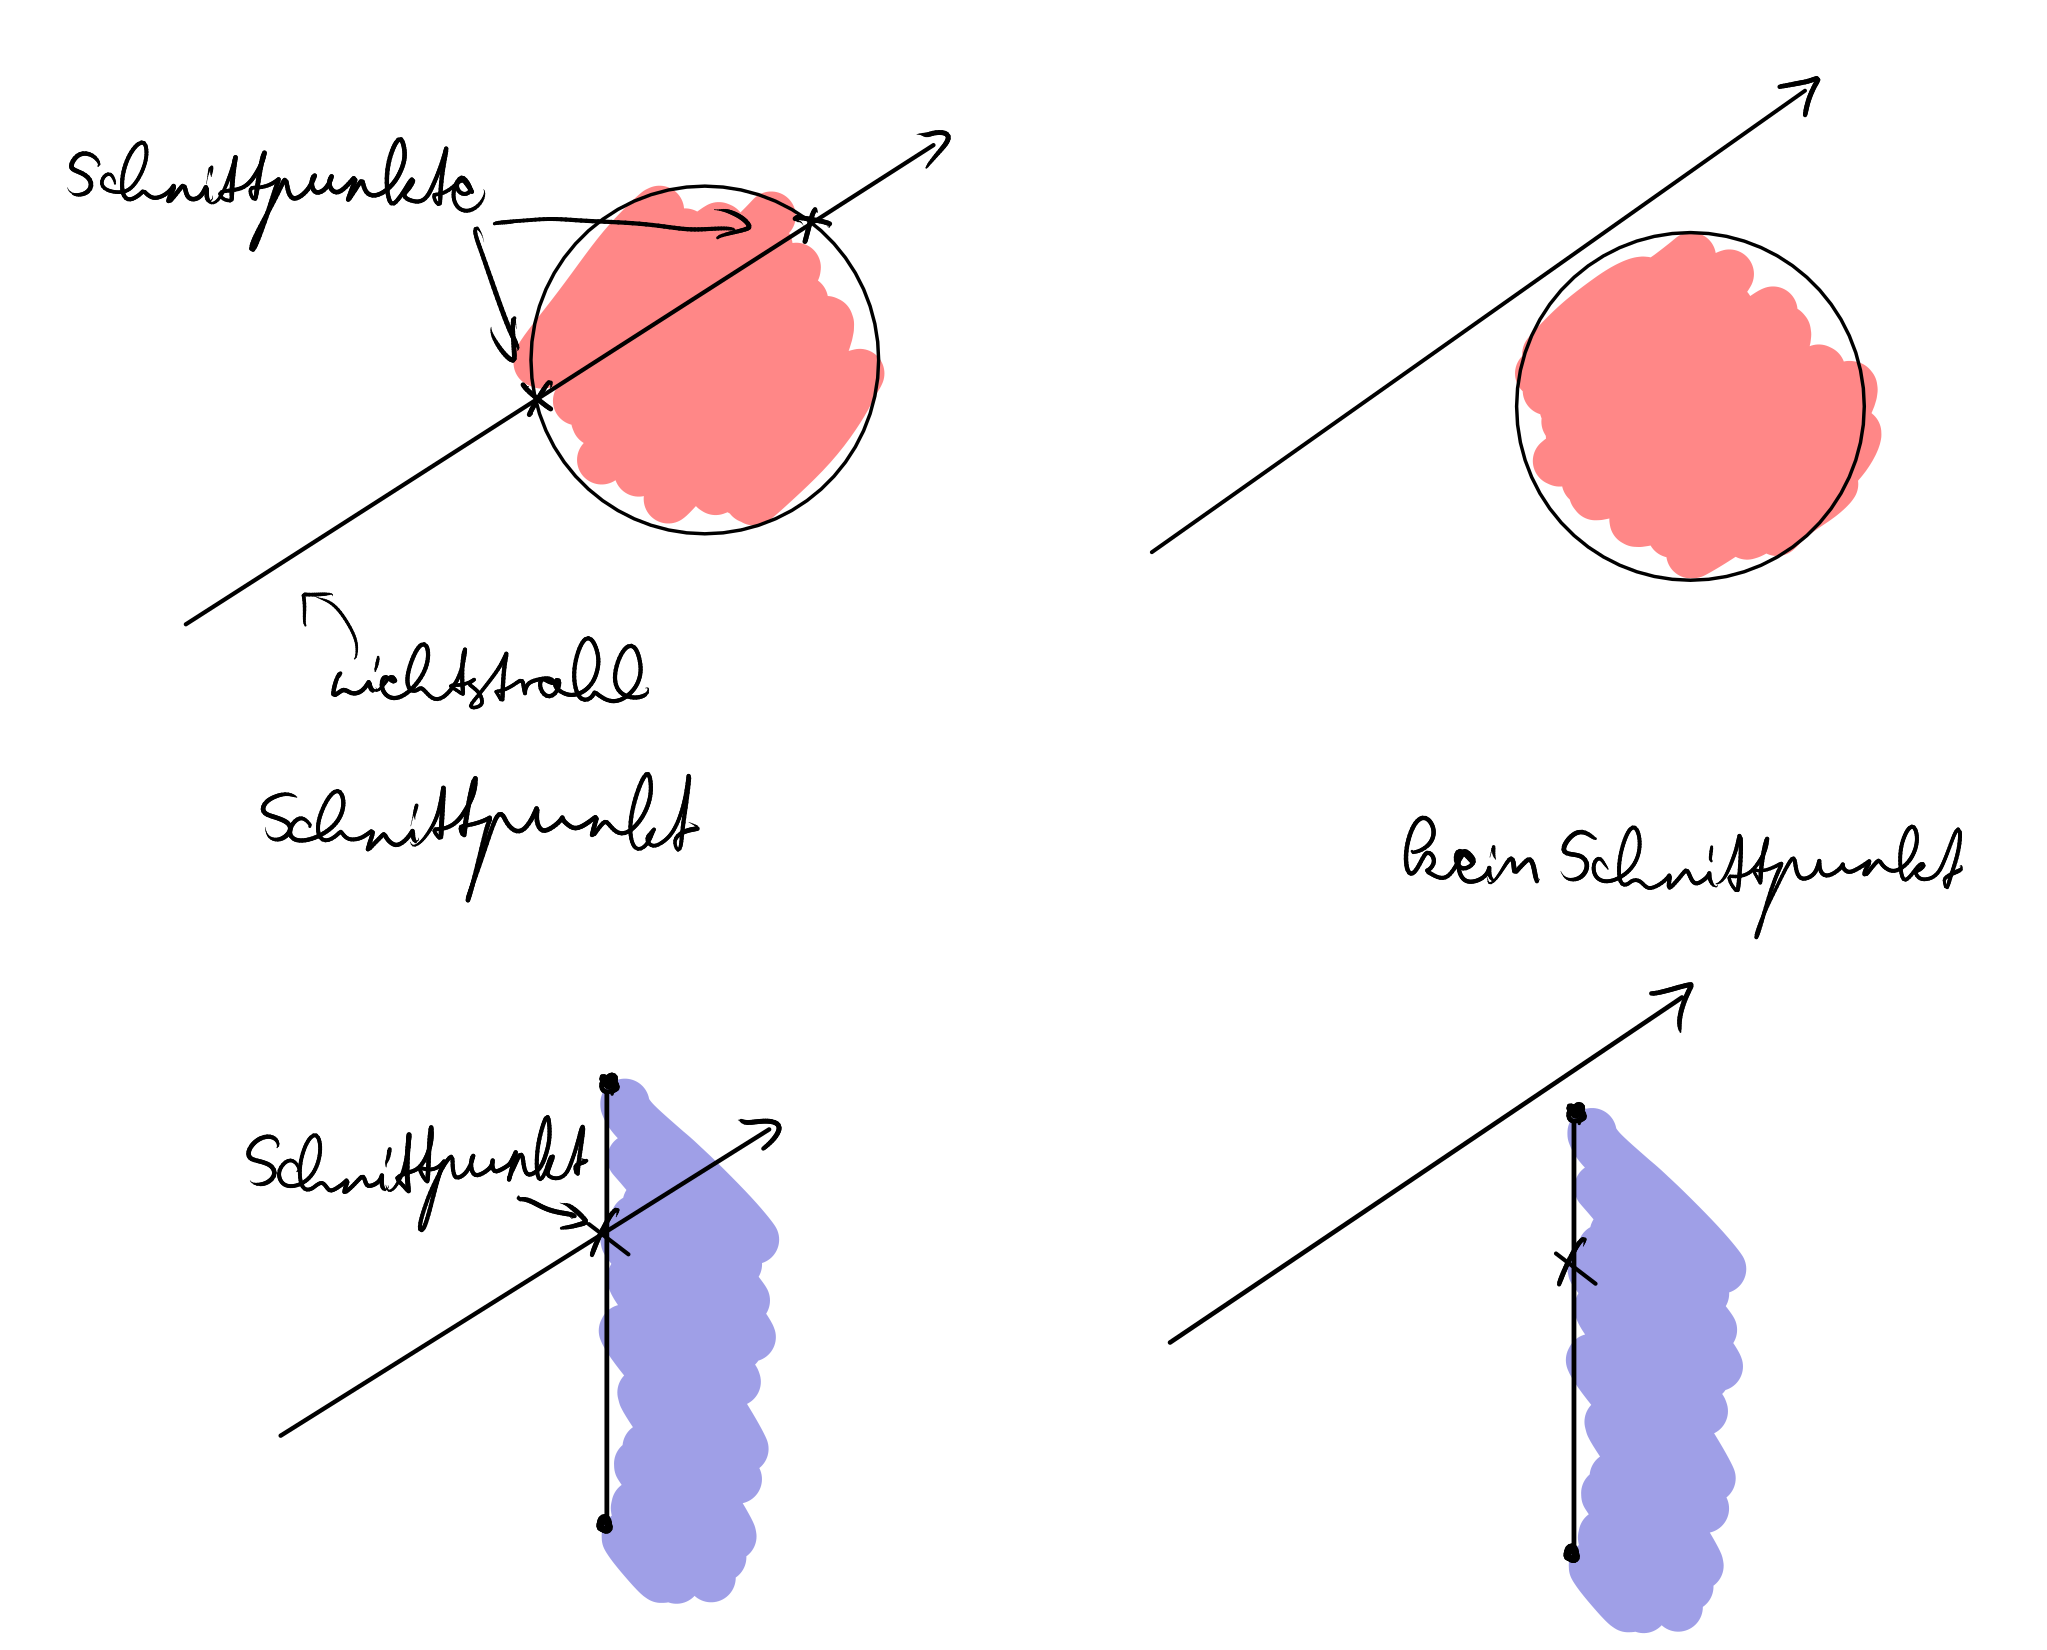 Schnittpunkte
Lichtstrahl
Schnittpunkt
kein Schnittpunkt
Schnittpunkt